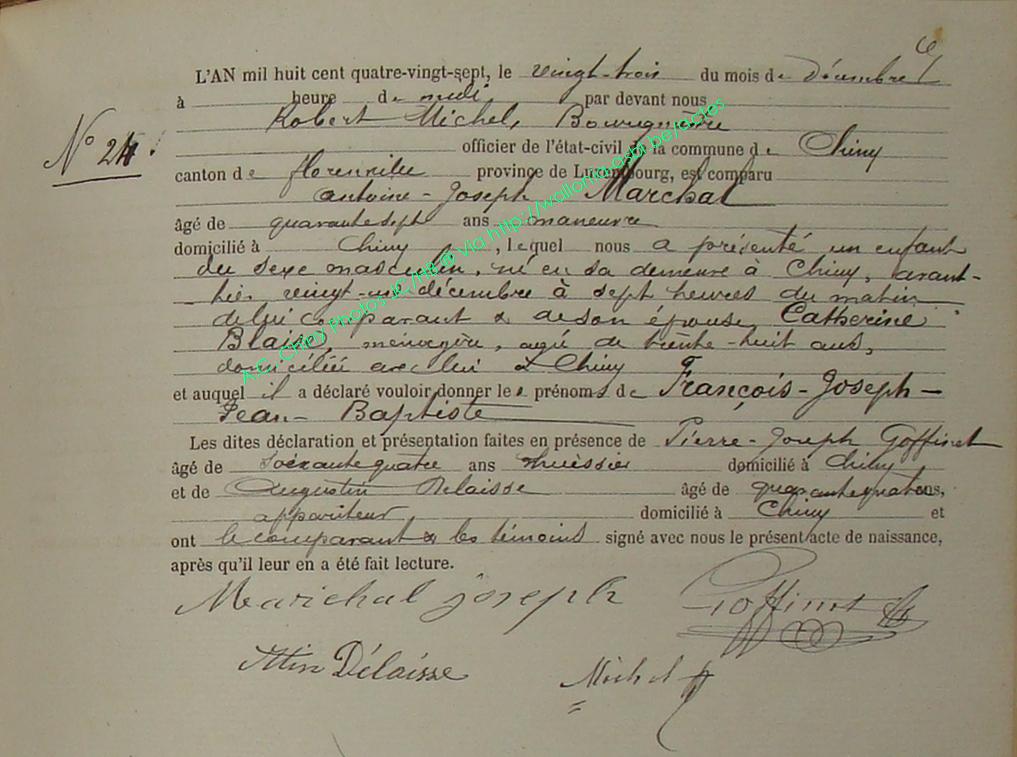 6
L'AN mil huit cent quatre-vingt-sept, le vingt-trois du mois de décembre
à heure de midi par devant nous
Robert Michel, Bourgmestre
N° 24 officier de l'état-civil de la commune de Chiny
canton de florenville province de Luxembourg, est comparu
antoine-Joseph Marchal
âgé de quarante sept ans maneuvre
domicilié à Chiny, lequel nous a présenté un enfant
du sexe masculin, né en sa demeure à Chiny, avant-
hier vingt-un décembre à sept heures du matin
de lui comparant & de son épouse Catherine
Blaise, ménagère, agée de trente-huit ans,
domiciliée avec lui à Chiny
et auquel il a déclaré vouloir donner les prénoms de François-Joseph-
Jean-Baptiste
Les dites déclaration et présentation faites en présence de Pierre-Joseph Goffinet
âgé de soixante quatre ans huissier domicilié à Chiny
et de Augustin Delaisse âgé de quarante quatre ans,
appariteur domicilié à Chiny et
ont le comparant & les témoins signé avec nous le présent acte de naissance,
après qu'il leur en a été fait lecture.
Marichal joseph Goffinet
Délaisse Michel
A.C. Chiny Photos JC/ via http://wallonica.asbl.be/actes